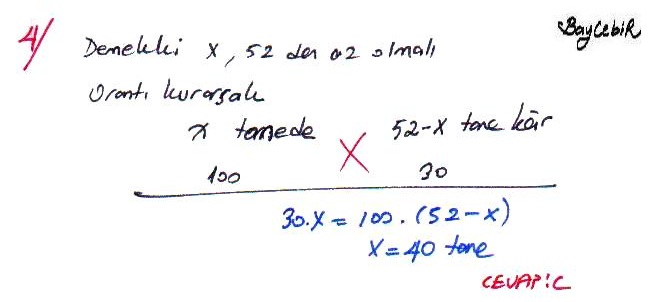 4/
BayCebir
Demekki x, 52 den az olmalı
Orantı kurarsak
x tanede 52-x tane kâr
100 30
30.x = 100.(52-x)
x=40 tane
CEVAP:C